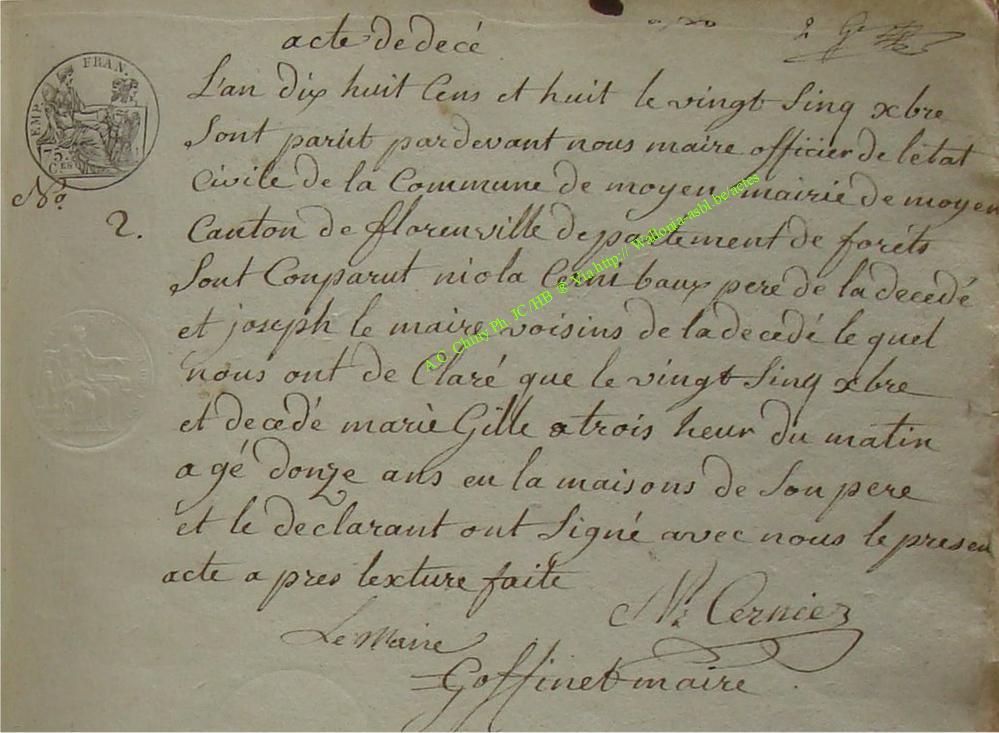 acte de decé
EMP. FRAN.
L'an dix huit Cens et huit le vingt Sinq xbre
Sont parut pardevant nous maire officier de létat
Civile de la Commune de moyen mairie de moyen
No.
2.
Canton de florenville departement de foréts
Sont Conparut niola Cerni baux pere de la decedé
et joseph le maire voisins de la decedé le quel
nous ont de Claré que le vingt Sinq xbre
et decedé marie Gille a trois heur du matin
a gé donze ans en la maisons de Son pere
et le declarant ont Signé avec nous le presen
acte a pres lexture faite
N. Cerniez
Le Maire
Goffinet maire
A.Q Chiny Ph. JC /HB ® Via http:// Wallonia-asbl.be/actes